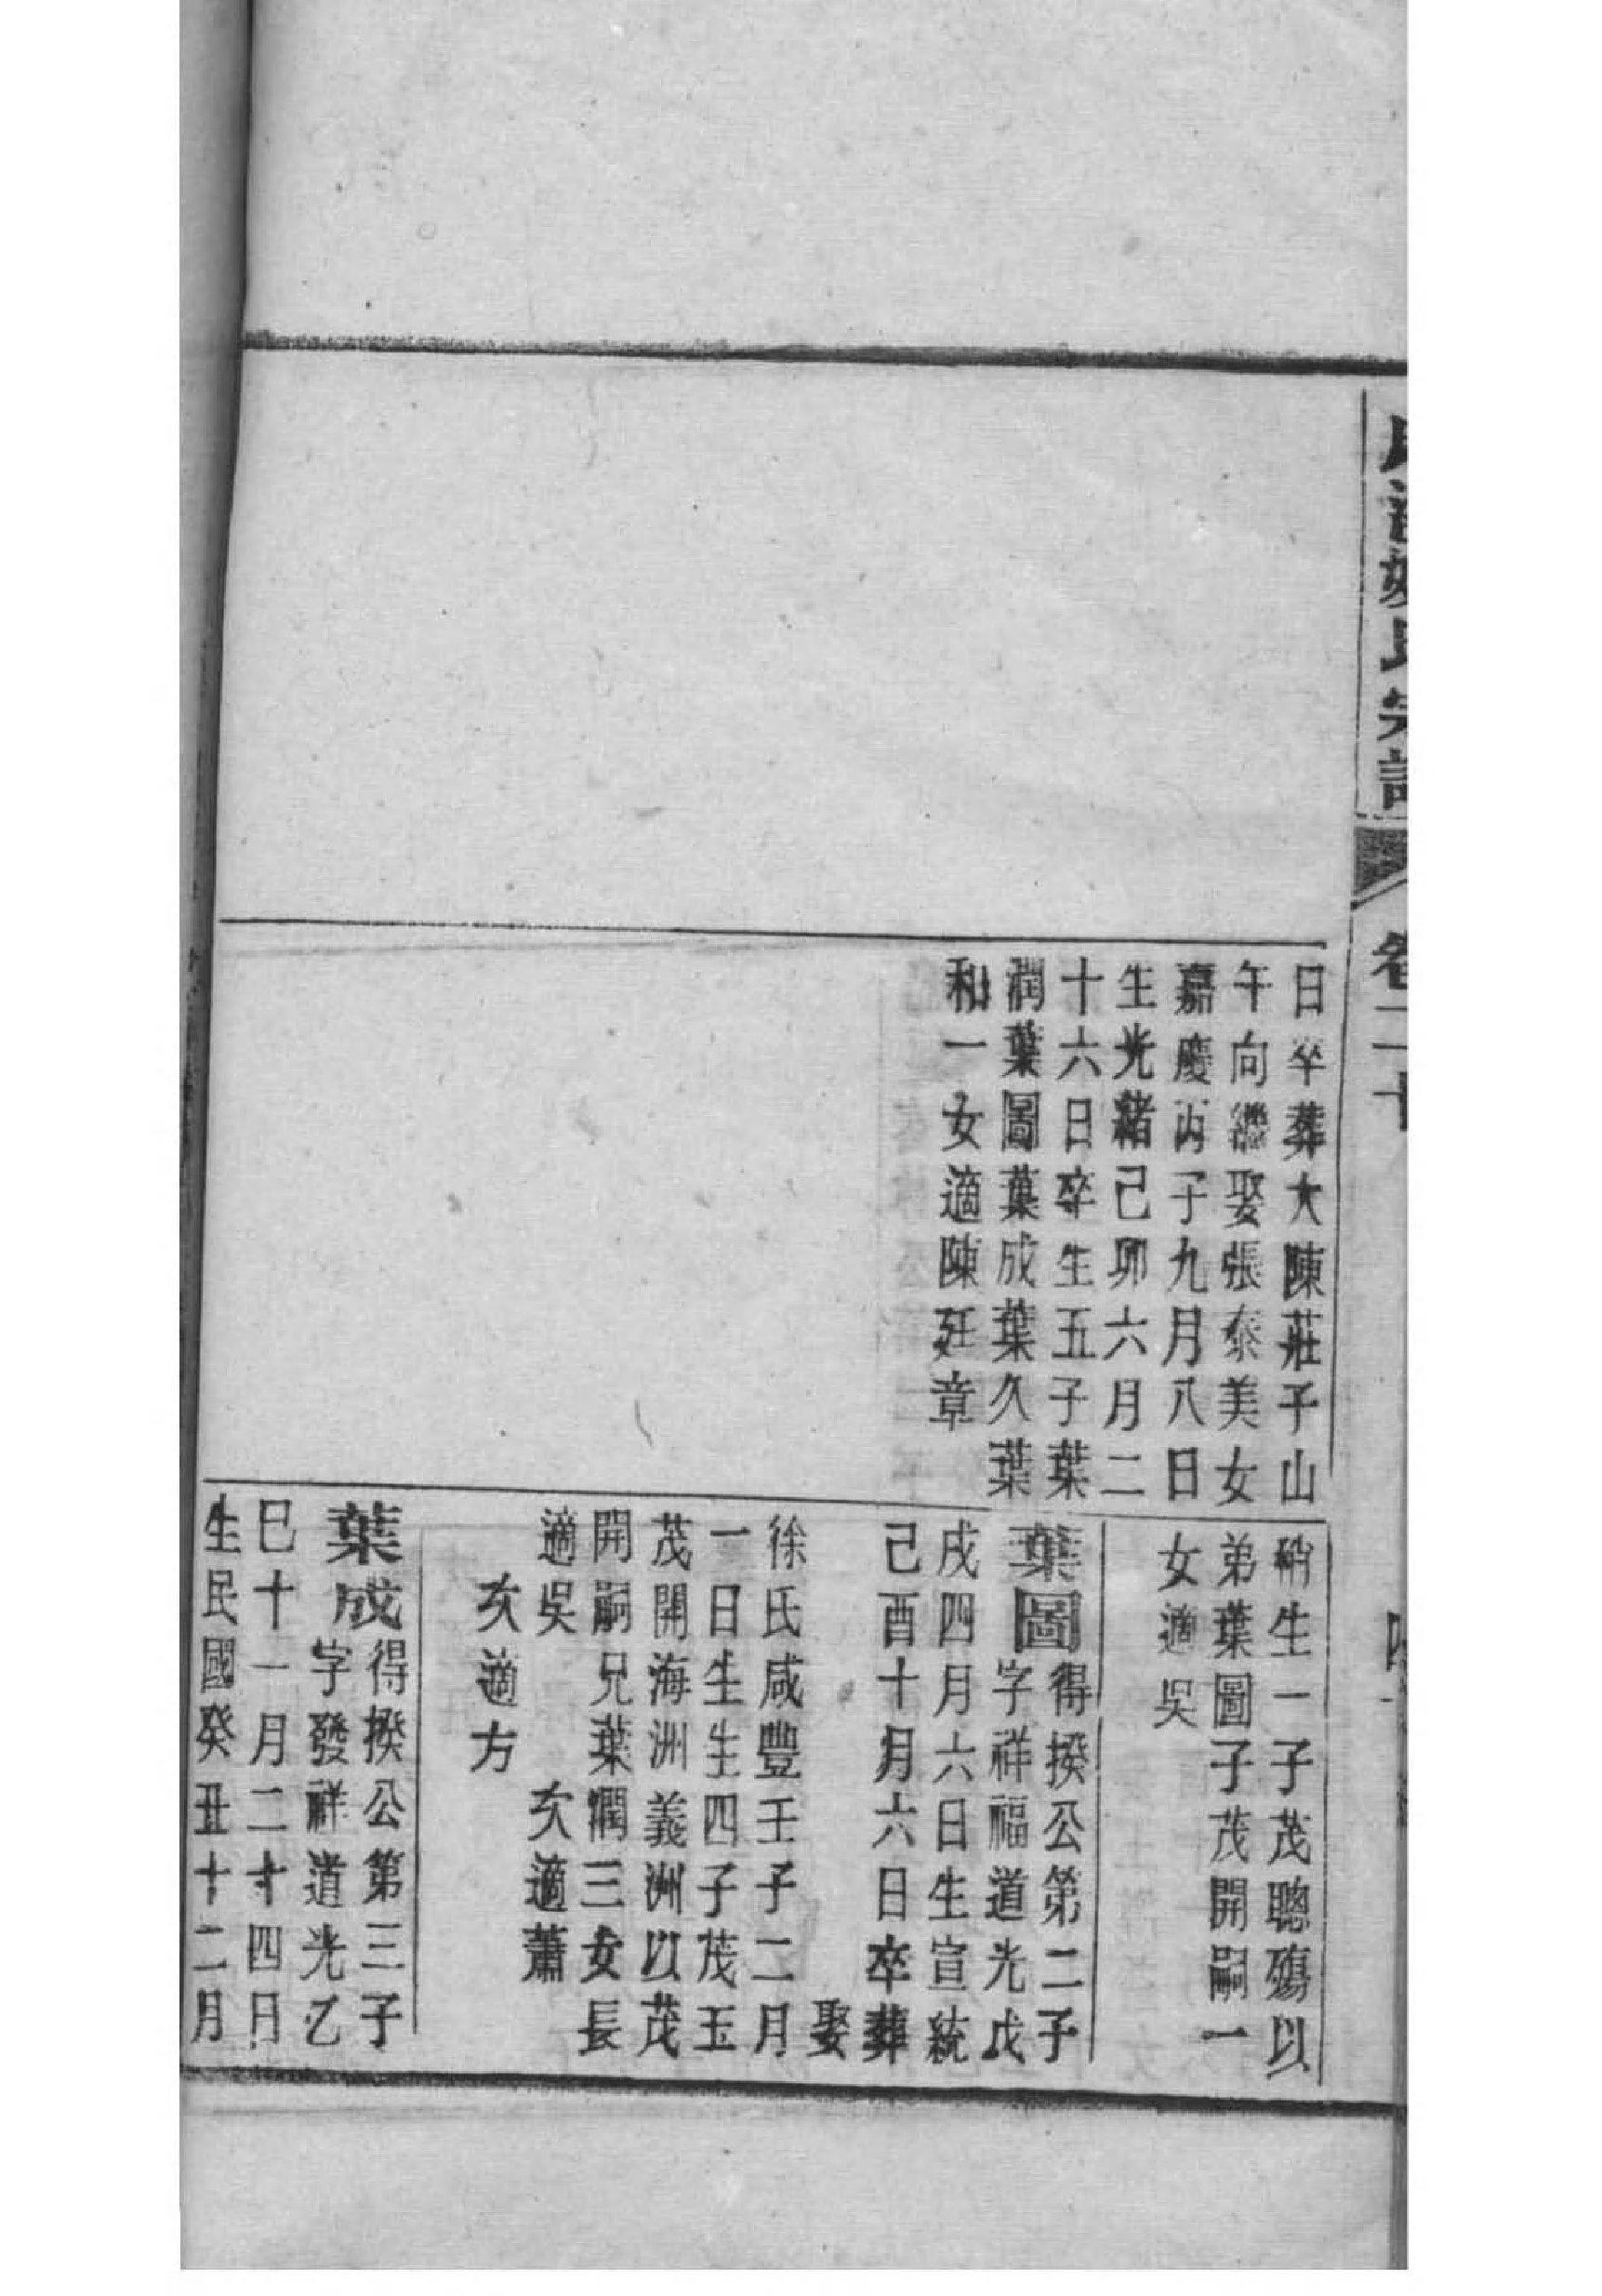 姚氏宗譜
卷二十
日卒葬大陳莊子山
午向繼娶張泰美女
嘉慶丙子九月八日
生光緒己卯六月二
十六日卒生五子葉
潤葉圖葉成葉久葉
和一女適陳廷章
稍生一子茂聰殤以
弟葉圖子茂開嗣一
女適吳
葉圖
得揆公第二子
字祥福道光戊
戌四月六日生宣統
己酉十月六日卒葬
娶
徐氏咸豐壬子二月
一日生生四子茂玉
茂開海洲義洲以茂
開嗣兄葉潤三女長
適吳 次適蕭
次適方
葉成
得揆公第三子
字發祥道光乙
巳十一月二十四日
生民國癸丑十二月